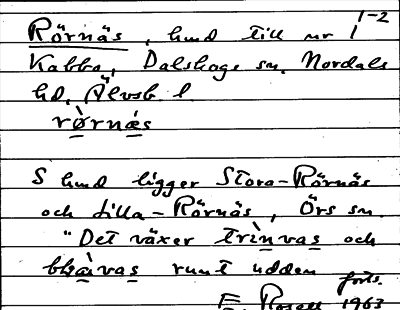 1-2
Rörnäs, hmd till nr 1
Kabbo, Dalskogs sn. Nordals
hd, Älvsb. l.
rø̀rnæs
S hmd ligger Stora-Rörnäs
och Lilla-Rörnäs, Örs sn.
"Det växer trìnvas och
runt udden
forts.
E. Rosell 1963